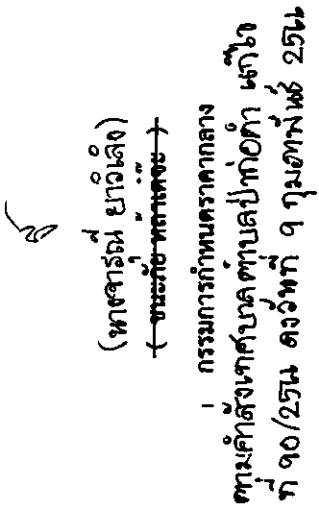 (นางจารุณี ยาวิเลิง)
กรรมการกำหนดราคากลาง
ตามคำสั่งเทศบาลตำบลป่าก่อดำ แก้ไข
ที่ 90/25 ลงวันที่ 9 กุมภาพันธ์ 25